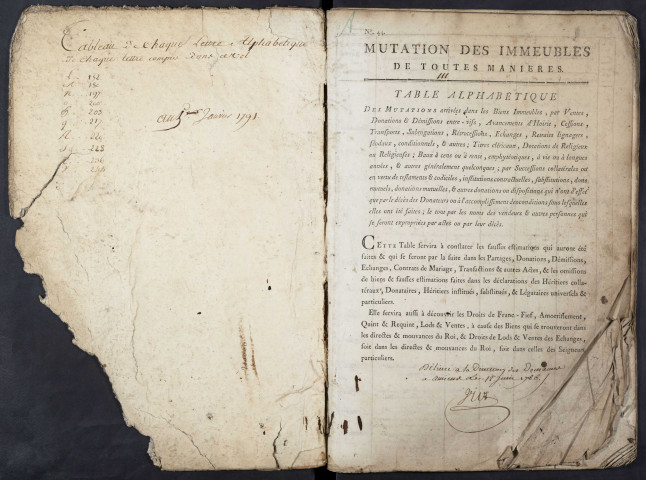 Tableau de chaque Lettre Alphabetique
de chaque lettre compris dans
152
197
203
217
225
206
Janvier 1791
MUTATION DES IMMEUBLES
DE TOUTES MANIERES.
TABLE ALPHABÉTIQUE
DES MUTATIONS arrivées dans les Biens Immeubles, par Ventes,
Donations & Démissions entre-vifs, Avancemens d'Hoirie, Cessions,
Transports, Subrogations, Rétrocessions, Echanges, Retraits lignager,
féodaux, conditionnels, & autres; Titres cléricaux, Donations de Religieux
ou Religieuses; Baux à cens ou à rente, emphytéotiques, à vie ou à longues
années, & autres généralement quelconques; par Successions collatérales ou
en vertu de testaments & codiciles, institutions contractuelles, substitutions, dons
mutuels, donations mutuelles, & autres donations ou dispositions qui n'ont d'effet
que par le décès des Donateurs ou à l'accomplissement des conditions sous lesquelles
elles ont été faites; le tout par les noms des vendeurs & autres personnes qui
se seront expropriées par actes ou par leur décès.
CETTE Table servira à constater les fausses estimations qui auront été
faites & qui se feront par la suite dans les Partages, Donations, Démissions,
Echanges, Contrats de Mariage, Transactions & autres Actes, & les omissions
de biens & fausses estimations faites dans les déclarations des Héritiers colla-
téraux, Donataires, Héritiers institués, substitués, & Légataires universels &
particuliers.
Elle servira aussi à découvrir les Droits de Franc-Fief, Amortissement,
Quint & Requint, Lods & Ventes, à cause des Biens qui se trouveront dans
les directes & mouvances du Roi, & Droits de Lods & Ventes des Echanges,
soit dans les directes & mouvances du Roi, soit dans celles des Seigneurs
particuliers.
Délivré a la Direction des Domaines
a amiens Le 15 Juin